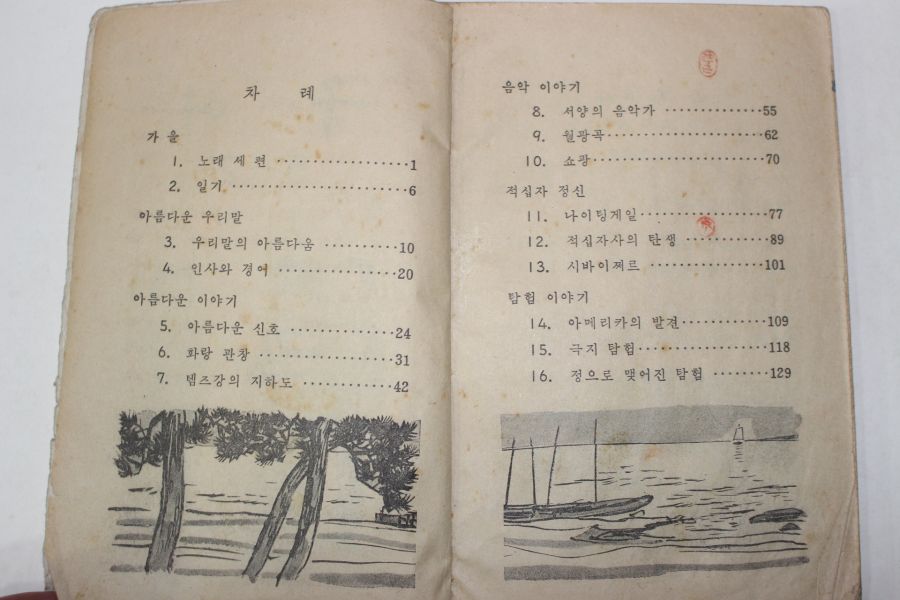 차 례
가 을
1. 노래 세 편 ················· 1
2. 일기 ······················· 6
아름다운 우리말
3. 우리말의 아름다움 ·········· 10
4. 인사와 경어 ················ 20
아름다운 이야기
5. 아름다운 신호 ·············· 24
6. 화랑 관창 ·················· 31
7. 템즈강의 지하도 ············ 42
음악 이야기
8. 서양의 음악가 ·············· 55
9. 월광곡 ····················· 62
10. 쇼팡 ······················ 70
적십자 정신
11. 나이팅게일 ················ 77
12. 적십자사의 탄생 ··········· 89
13. 시바이쩌르 ··············· 101
탐험 이야기
14. 아메리카의 발견 ·········· 109
15. 극지 탐험 ················ 118
16. 정으로 맺어진 탐험 ······· 129